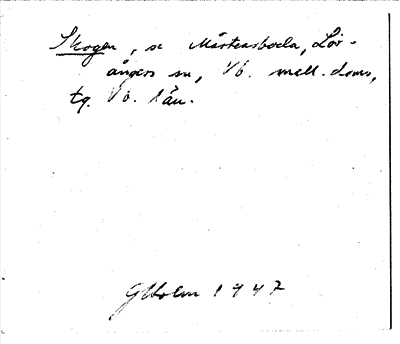 Skogen, se Mårtensboda, Löv-
ångers sn, Vb. mell. doms,
tg. Vb. län.
GHolm 1947